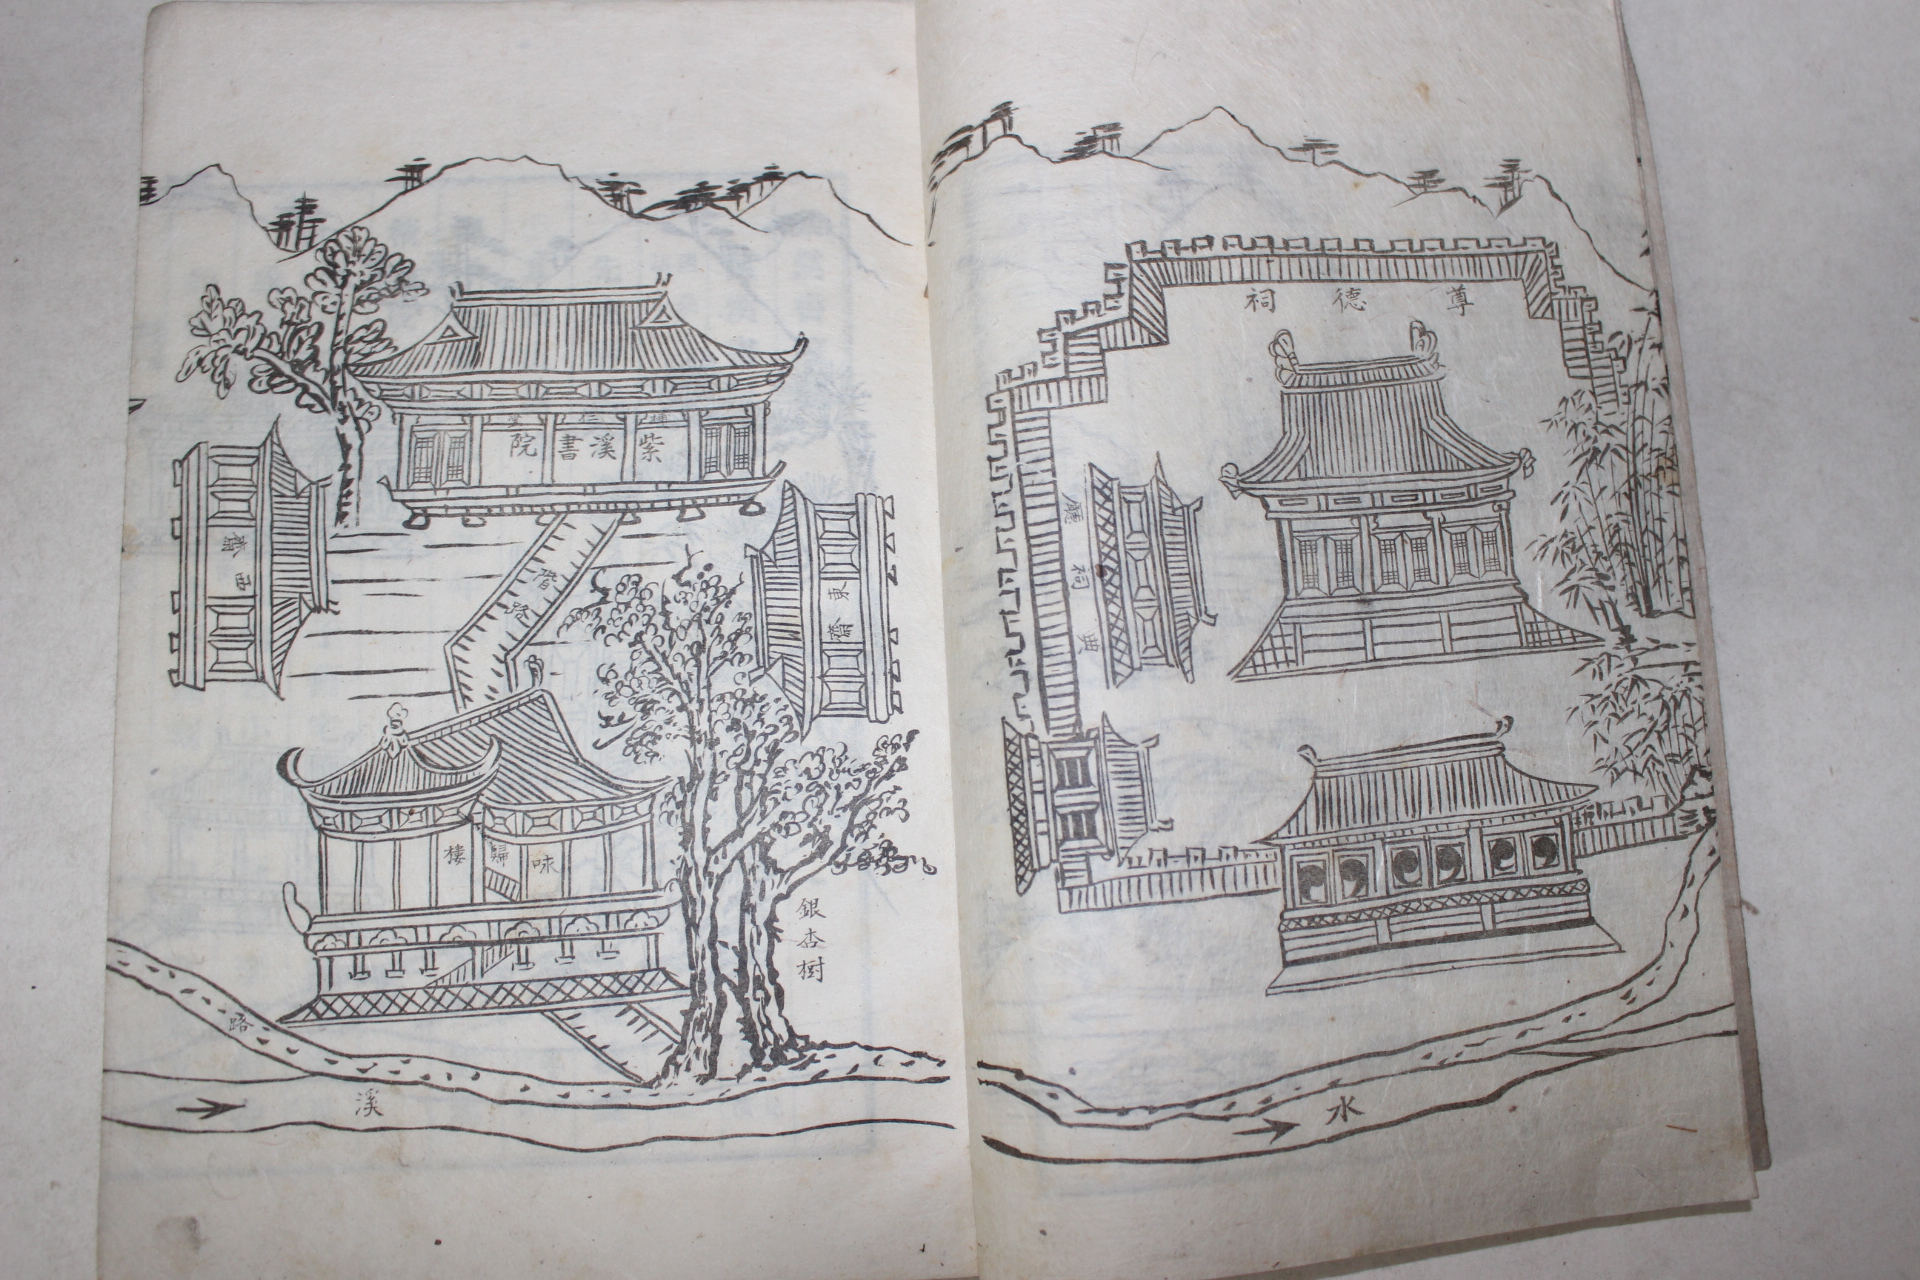 尊德祠
典祠廳
水
紫溪書院
東齋
西齋
路
咏歸樓
銀杏樹
路
溪